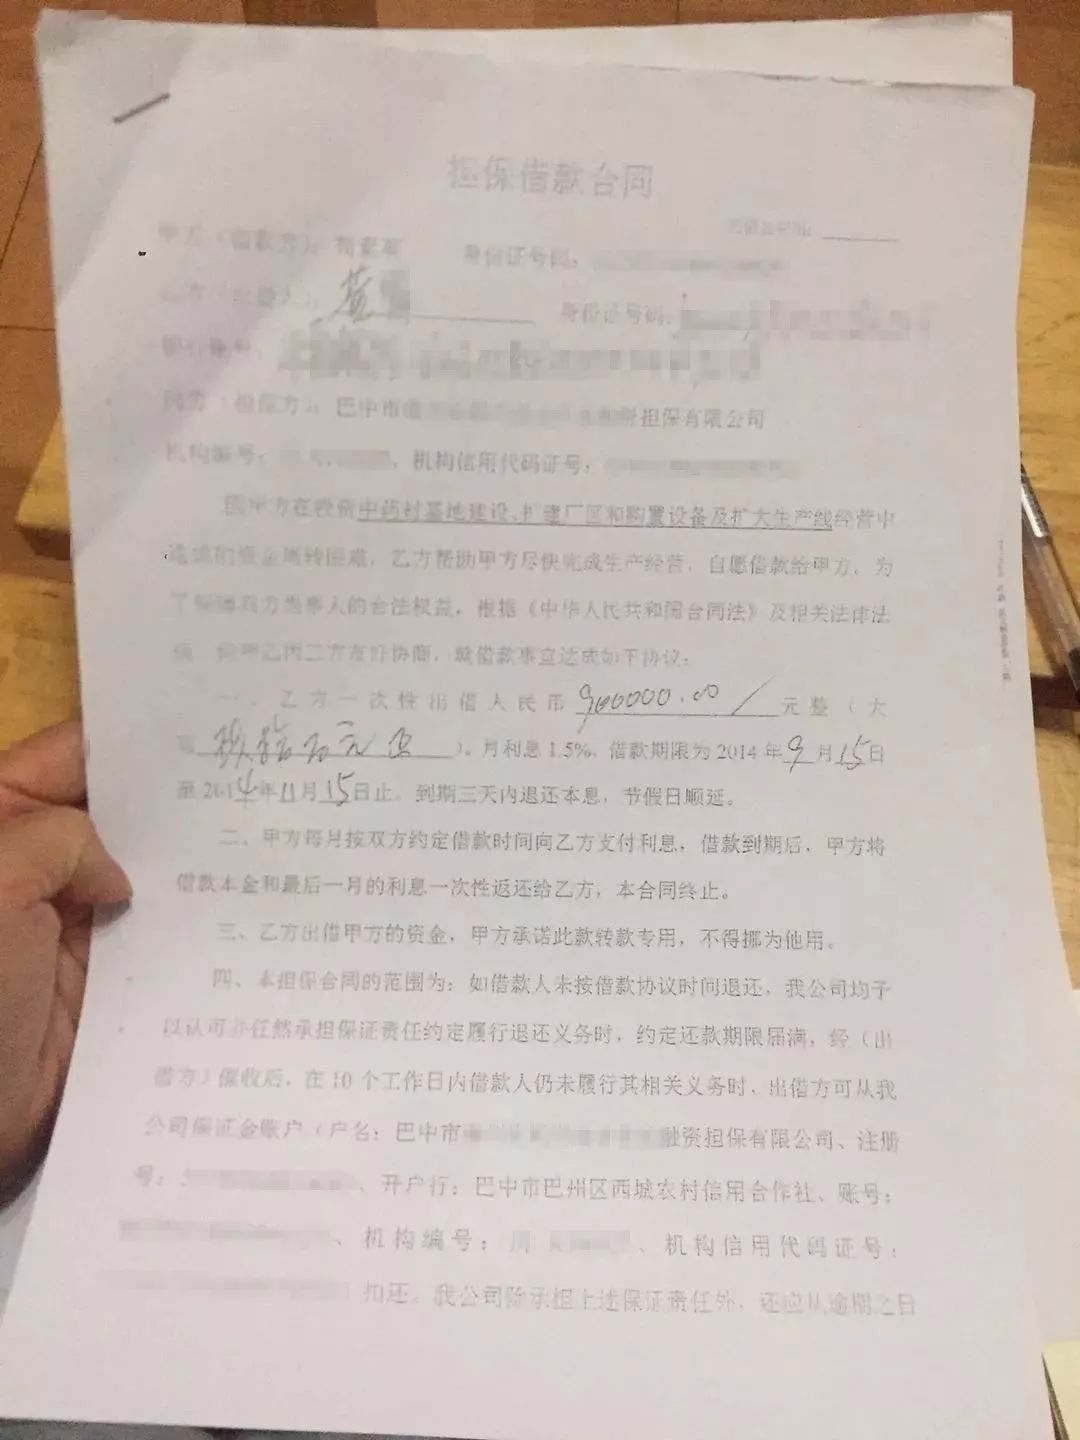 担保借款合同
甲方（借款方）：苟 身份证号码：
乙方（出借人）：董 身份证号码：
银行账号：
丙方（担保方）：巴中市 担保有限公司
机构编号： ，机构信用代码证号：
因甲方在投资中药材基地建设、扩建厂区和购置设备及扩大生产线经营中
造成的资金周转困难，乙方帮助甲方尽快完成生产经营，自愿借款给甲方，为
了保障双方当事人的合法权益，根据《中华人民共和国合同法》及相关法律法
规，经甲乙丙三方友好协商，就借款事宜达成如下协议：
一、乙方一次性出借人民币900000.00/元整（大
写 玖拾万元正 ）。月利息1.5%，借款期限为2014年9月15日
至2014年11月15日止，到期三天内退还本息，节假日顺延。
二、甲方每月按双方约定借款时间向乙方支付利息，借款到期后，甲方将
借款本金和最后一月的利息一次性返还给乙方，本合同终止。
三、乙方出借甲方的资金，甲方承诺此款转款专用，不得挪为他用。
四、本担保合同的范围为：如借款人未按借款协议时间退还，我公司均予
以认可亦任然承担保证责任约定履行退还义务时，约定还款期限届满，经（出
借方）催收后，在10个工作日内借款人仍未履行其相关义务时，出借方可从我
公司保证金账户（户名：巴中市 融资担保有限公司、注册
号：5 、开户行：巴中市巴州区西城农村信用合作社、账号：
、机构编号： 、机构信用代码证号：
扣还。我公司除承担上述保证责任外，还应从逾期之日